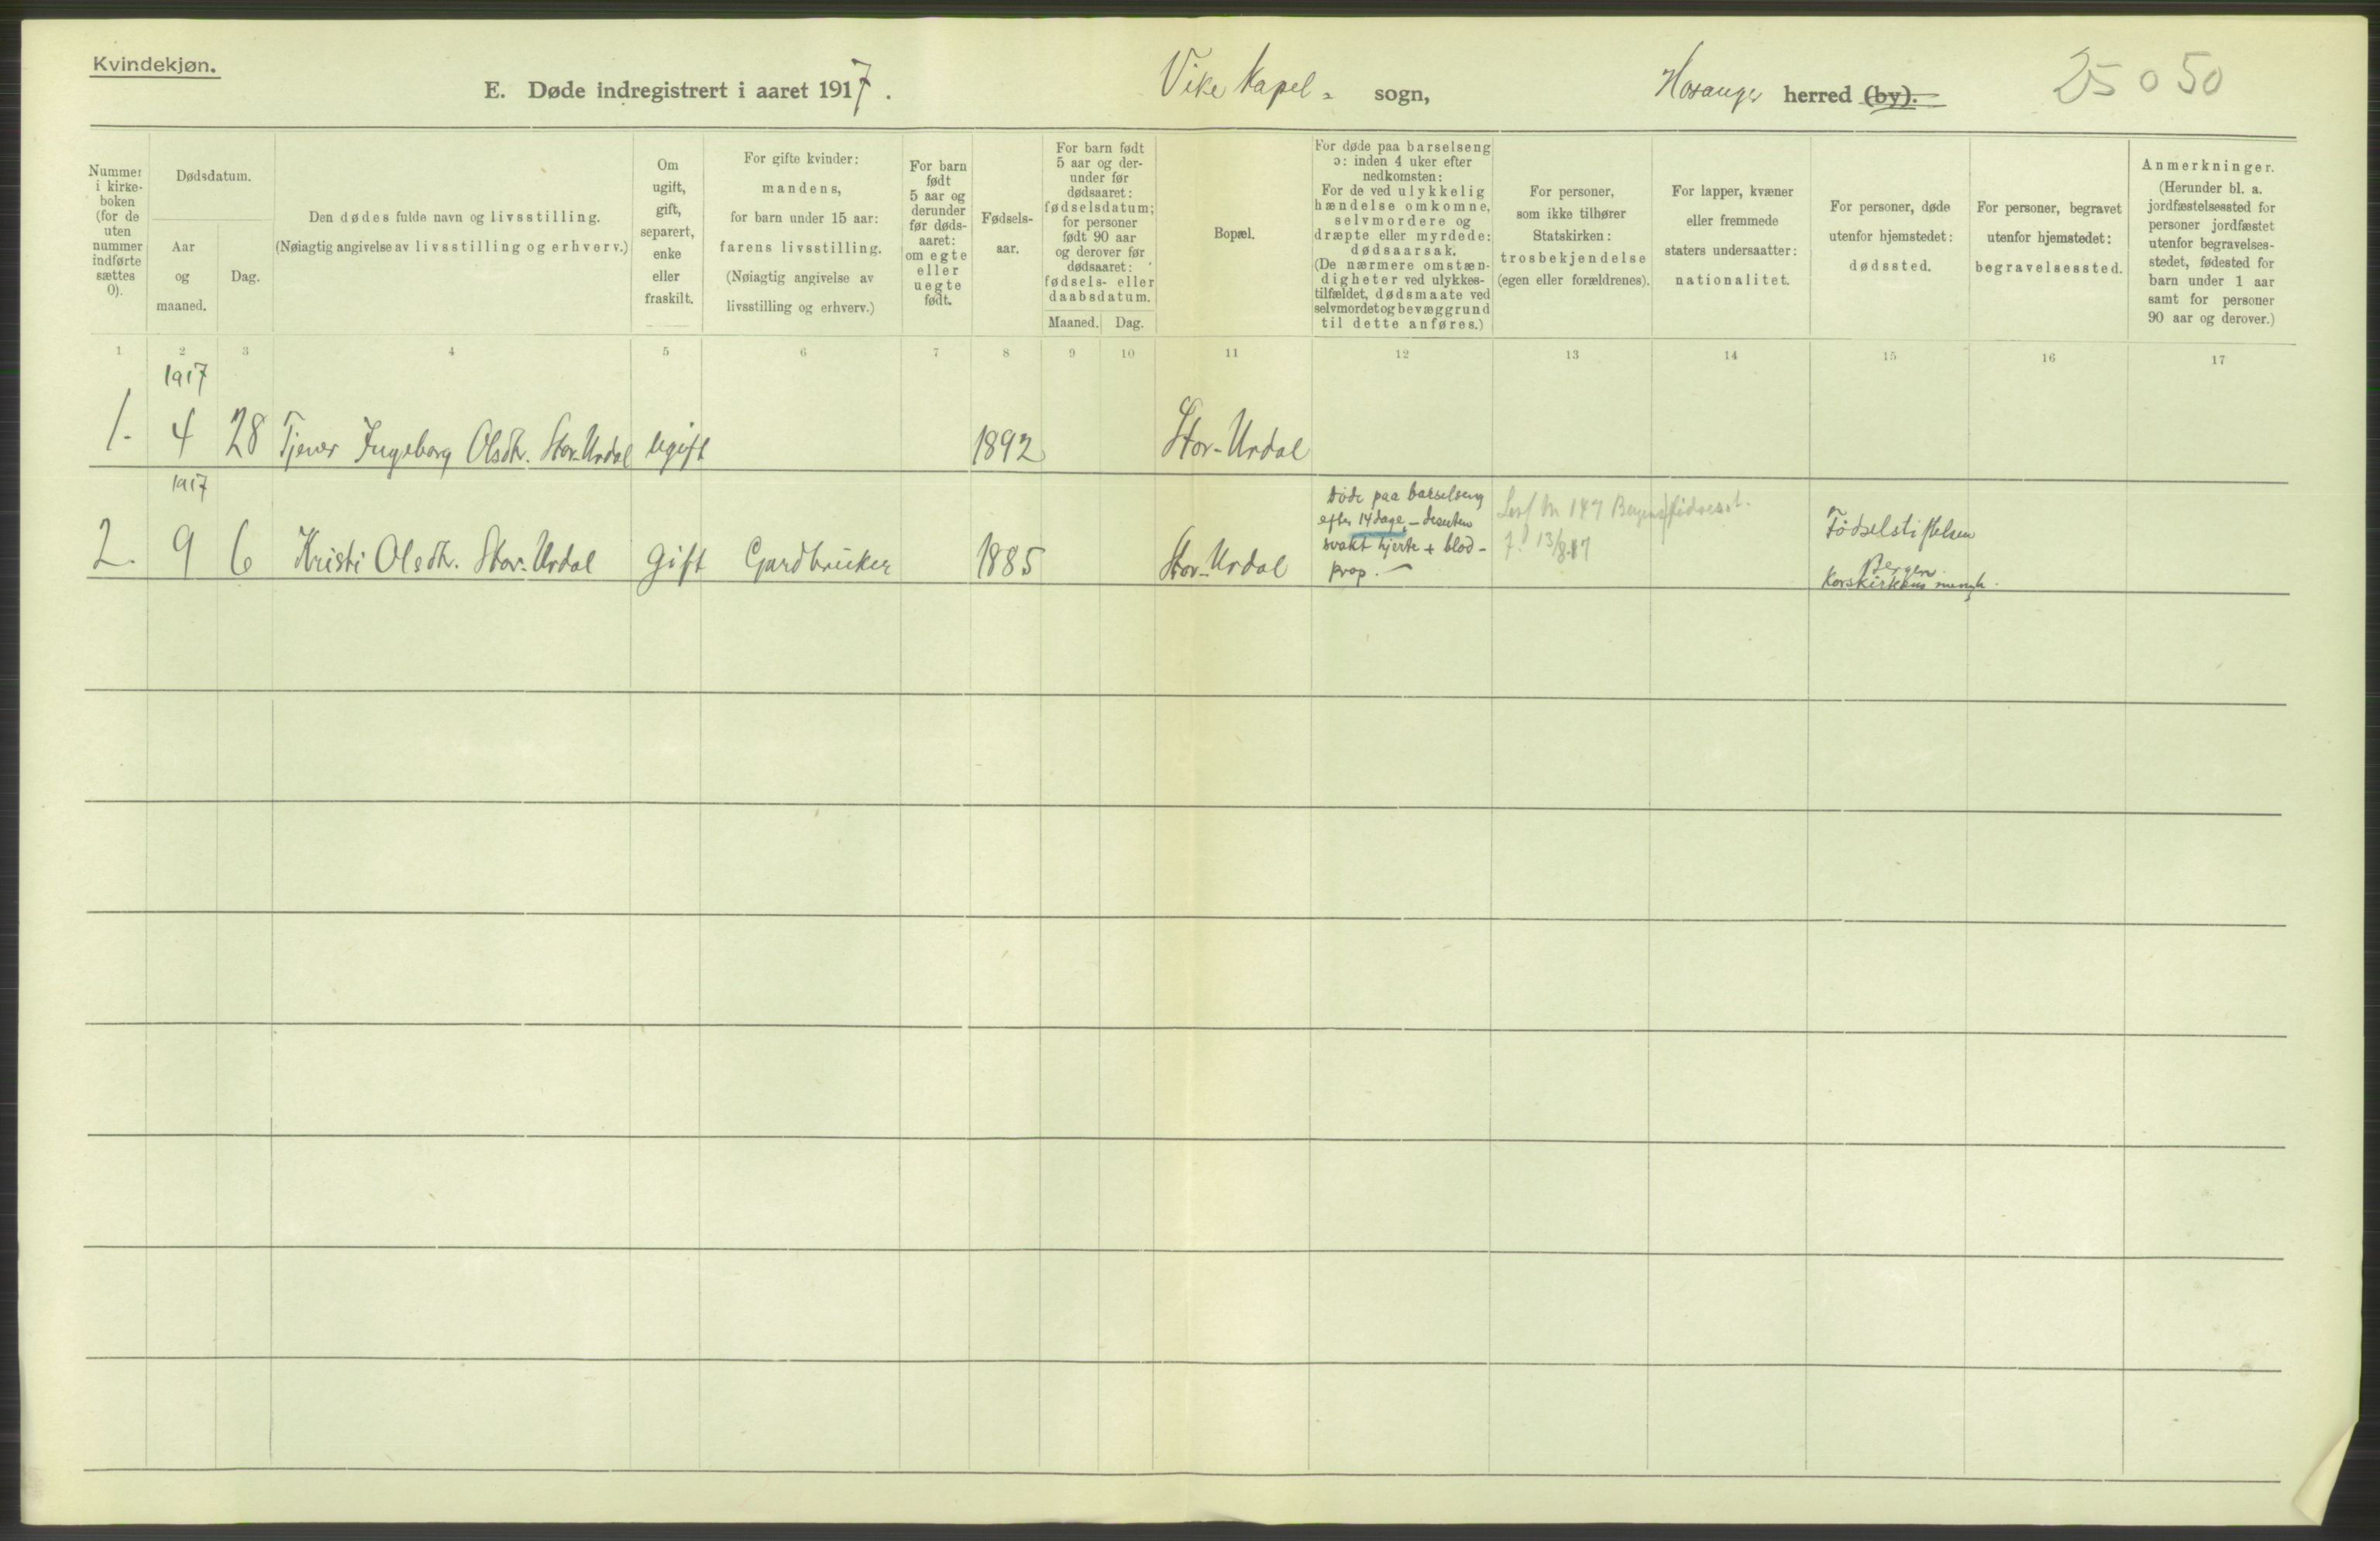 Kvindekjøn.
E. Døde indregistrert i aaret 1917.
Vike Kapel- sogn,
Hosanger herred (by).
25 0 50
Nummer i kirkeboken (for de uten nummer indførte sættes 0).
Dødsdatum.
Aar og maaned.
Dag.
Den dødes fulde navn og livsstilling.
(Nøiagtig angivelse av livsstilling og erhverv.)
Om ugift, gift, separert, enke eller fraskilt.
For gifte kvinder: mandens, for barn under 15 aar: farens livsstilling. (Nøiagtig angivelse av livsstilling og erhverv.)
For barn født 5 aar og derunder før dødsaaret: om egte eller uegte født.
Fødselsaar.
For barn født 5 aar og derunder før dødsaaret: fødselsdatum; for personer født 90 aar og derover før dødsaaret: fødsels- eller daabsdatum.
Maaned. Dag.
Bopæl.
For døde paa barselseng ɔ: inden 4 uker efter nedkomsten: For de ved ulykkelig hændelse omkomne, selvmordere og dræpte eller myrdede: dødsaarsak. (De nærmere omstændigheter ved ulykkestilfældet, dødsmaate ved selvmordet og bevæggrund til dette anføres.)
For personer, som ikke tilhører Statskirken: trosbekjendelse (egen eller forældrenes).
For lapper, kvæner eller fremmede staters undersaatter: nationalitet.
For personer, døde utenfor hjemstedet: dødssted.
For personer, begravet utenfor hjemstedet: begravelsessted.
Anmerkninger. (Herunder bl. a. jordfæstelsessted for personer jordfæstet utenfor begravelsesstedet, fødested for barn under 1 aar samt for personer 90 aar og derover.)
1 2 3 4 5 6 7 8 9 10 11 12 13 14 15 16 17
1917
1. 4 28 Tjener Ingeborg Olsdtr. Stor-Urdal ugift 1892 Stor-Urdal
1917
2. 9 6 Kristi Olsdtr. Stor-Urdal gift Gardbruker 1885 Stor-Urdal
døde paa barselseng
efter 14 dage -
svakt hjerte + blod-
prop. -
147
f. 13/8.17
Fødselstiftelsen
Bergen
Korskirkens mengh.